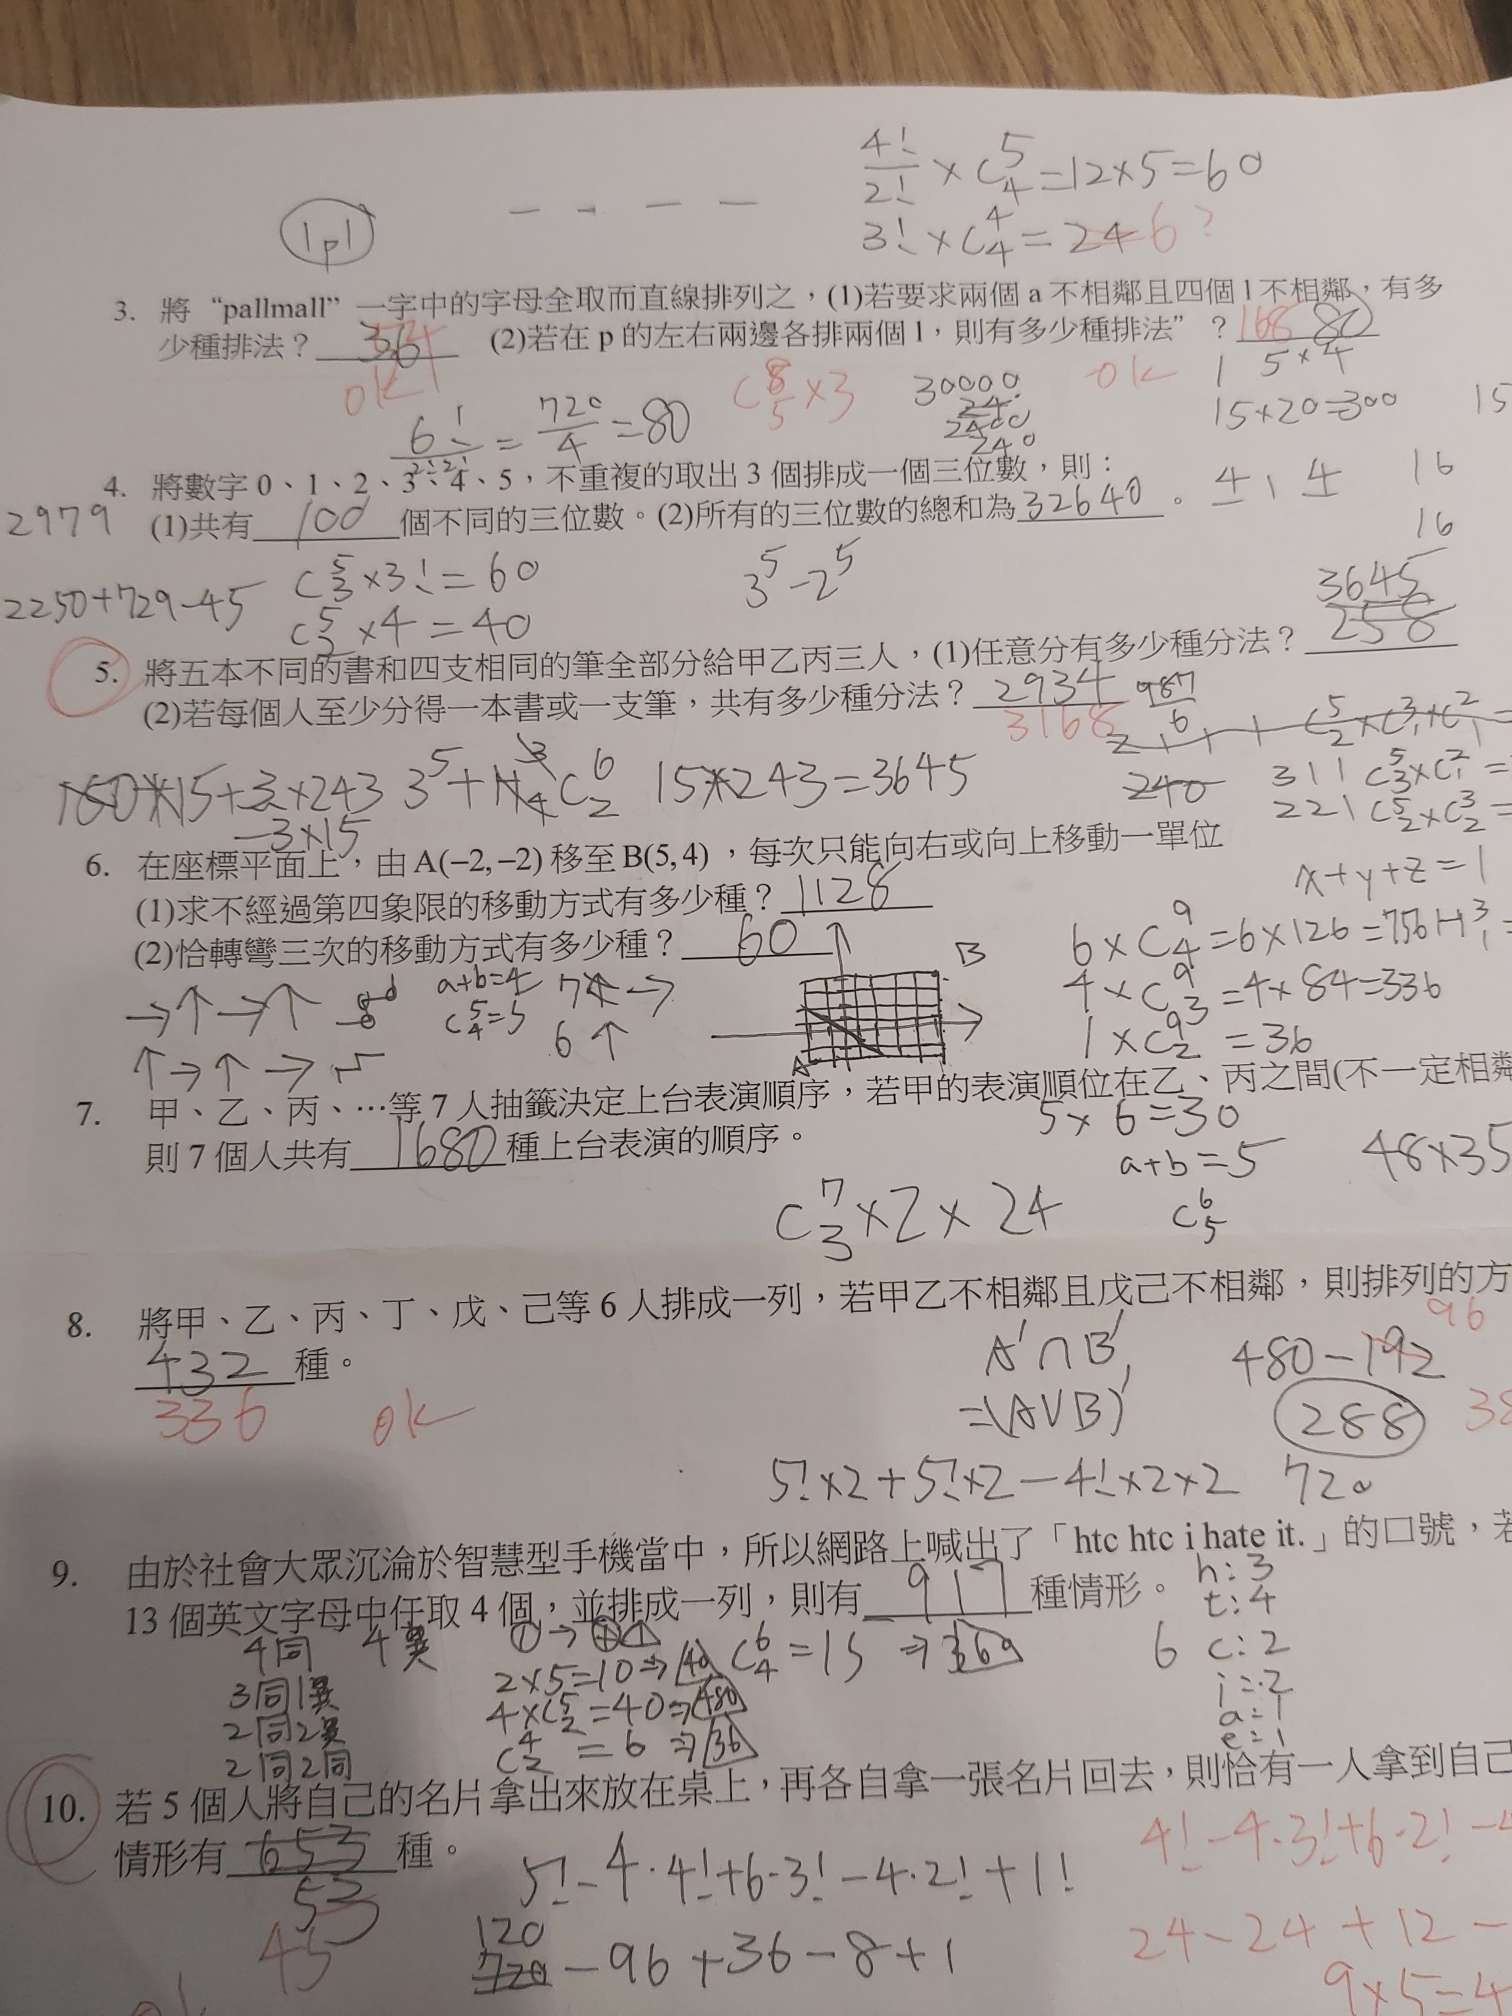 4!/2! × C5 4 = 12×5 = 60
3! × C4 4 = 24 6?
lpl
3. 將 “pallmall” 一字中的字母全取而直線排列之，(1)若要求兩個 a 不相鄰且四個 l 不相鄰，有多
少種排法？ 36 (2)若在 p 的左右兩邊各排兩個 l，則有多少種排法” ？ 168 80
ok C8 5 ×3 30000 ok 1 5×4
6!/2!2! = 720/4 = 80 24 2400 240 15×20=300 15
4. 將數字 0、1、2、3、4、5，不重複的取出 3 個排成一個三位數，則：
2979 (1)共有 100 個不同的三位數。(2)所有的三位數的總和為 32640 。 4 1 4 16
16
2250+729-45 C5 3 ×3! = 60 3^5-2^5
C5 2 ×4 = 40 3645
5. 將五本不同的書和四支相同的筆全部分給甲乙丙三人，(1)任意分有多少種分法？ 258
(2)若每個人至少分得一本書或一支筆，共有多少種分法？ 2934 987
3168 6
15+3×243 3^5+H3 4 C6 2 15×243=3645 240 311 C5 3×C2 1 =
-3×15 221 C5 2×C3 2 =
6. 在座標平面上，由 A(–2, –2) 移至 B(5, 4) ，每次只能向右或向上移動一單位
(1)求不經過第四象限的移動方式有多少種？ 1128 x+y+z=1
(2)恰轉彎三次的移動方式有多少種？ 60 B 6×C9 4=6×126=756 H3 1=
→↑→↑ a+b=4 7 → 4×C9 3=4×84=336
C5 4=5 6↑ 1×C9 2 = 36
↑→↑→ A
7. 甲、乙、丙、…等 7 人抽籤決定上台表演順序，若甲的表演順位在乙、丙之間(不一定相鄰
5×6=30
則 7 個人共有 1680 種上台表演的順序。
a+b=5 48×35
C7 3×2×24 C6 5
8. 將甲、乙、丙、丁、戊、己等 6 人排成一列，若甲乙不相鄰且戊己不相鄰，則排列的方
96
432 種。 A'∩B' 480-192
336 ok =(A∪B)' 288 38
5!×2+5!×2-4!×2×2 720
9. 由於社會大眾沉淪於智慧型手機當中，所以網路上喊出了「htc htc i hate it.」的口號，若
13 個英文字母中任取 4 個，並排成一列，則有 917 種情形。 h:3
t:4
4同 4異 C6 4=15 ⇒360 6 c:2
3同1異 2×5=10⇒40 i:2
2同2異 4×C5 2=40⇒480 a:1
2同2同 C4 2 = 6 ⇒36 e:1
10. 若 5 個人將自己的名片拿出來放在桌上，再各自拿一張名片回去，則恰有一人拿到自己
4!-4·3!+6·2!-4
情形有 653 種。
53 5!-4·4!+6·3!-4·2!+1!
45 120 24-24+12-
720 -96+36-8+1
9×5=4
ok